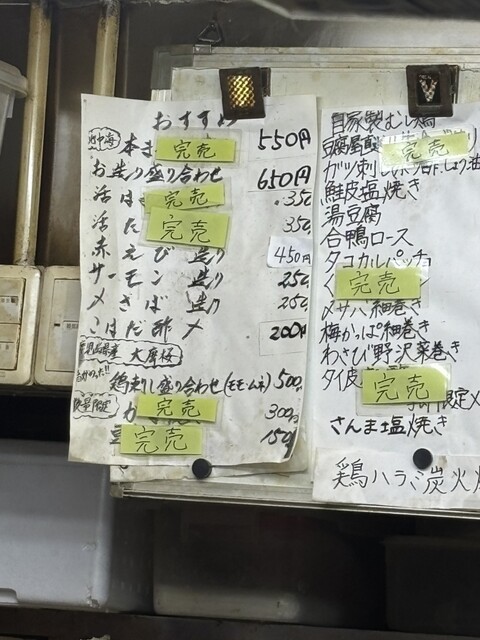 おすすめ
地中海 本ま 完売 550円
お造り盛り合わせ 650円
活は 完売 350
活た 完売 350
赤えび 造り 450円
サーモン 造り 250
〆さば 造り 250
こはだ酢〆 200円
鹿児島県産 大摩桜
鶏刺し盛り合わせ(モモ・ムネ) 500
数量限定 完売 300
完売 150
自家製むし鶏
豆腐 完売
ガツ刺し
鮭皮塩焼き
湯豆腐
合鴨ロース
タコカルパッチョ
完売
〆サバ細巻き
梅かっぱ細巻き
わさび野沢菜巻き
タイ皮 完売
限定〆
さんま塩焼き
鶏ハラミ炭火